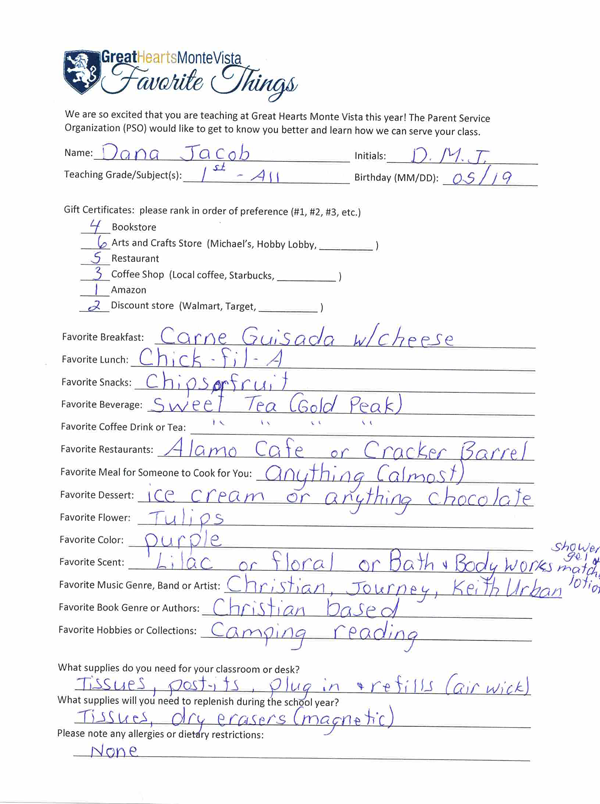 GreatHeartsMonteVista
Favorite Things
We are so excited that you are teaching at Great Hearts Monte Vista this year! The Parent Service
Organization (PSO) would like to get to know you better and learn how we can serve your class.
Name: Dana Jacob Initials: D. M. J.
Teaching Grade/Subject(s): 1st - All Birthday (MM/DD): 05/19
Gift Certificates: please rank in order of preference (#1, #2, #3, etc.)
4 Bookstore
6 Arts and Crafts Store (Michael's, Hobby Lobby, __________ )
5 Restaurant
3 Coffee Shop (Local coffee, Starbucks, ___________ )
1 Amazon
2 Discount store (Walmart, Target, ___________ )
Favorite Breakfast: Carne Guisada w/cheese
Favorite Lunch: Chick-fil-A
Favorite Snacks: Chips or fruit
Favorite Beverage: Sweet Tea (Gold Peak)
Favorite Coffee Drink or Tea: " " " "
Favorite Restaurants: Alamo Cafe or Cracker Barrel
Favorite Meal for Someone to Cook for You: anything (almost)
Favorite Dessert: ice cream or anything chocolate
Favorite Flower: Tulips
Favorite Color: purple
Favorite Scent: Lilac or floral or Bath & Body Works shower gel & matching lotion
Favorite Music Genre, Band or Artist: Christian, Journey, Keith Urban
Favorite Book Genre or Authors: Christian based
Favorite Hobbies or Collections: Camping reading
What supplies do you need for your classroom or desk?
Tissues, post-its, plug in & refills (air wick)
What supplies will you need to replenish during the school year?
Tissues, dry erasers (magnetic)
Please note any allergies or dietary restrictions:
None